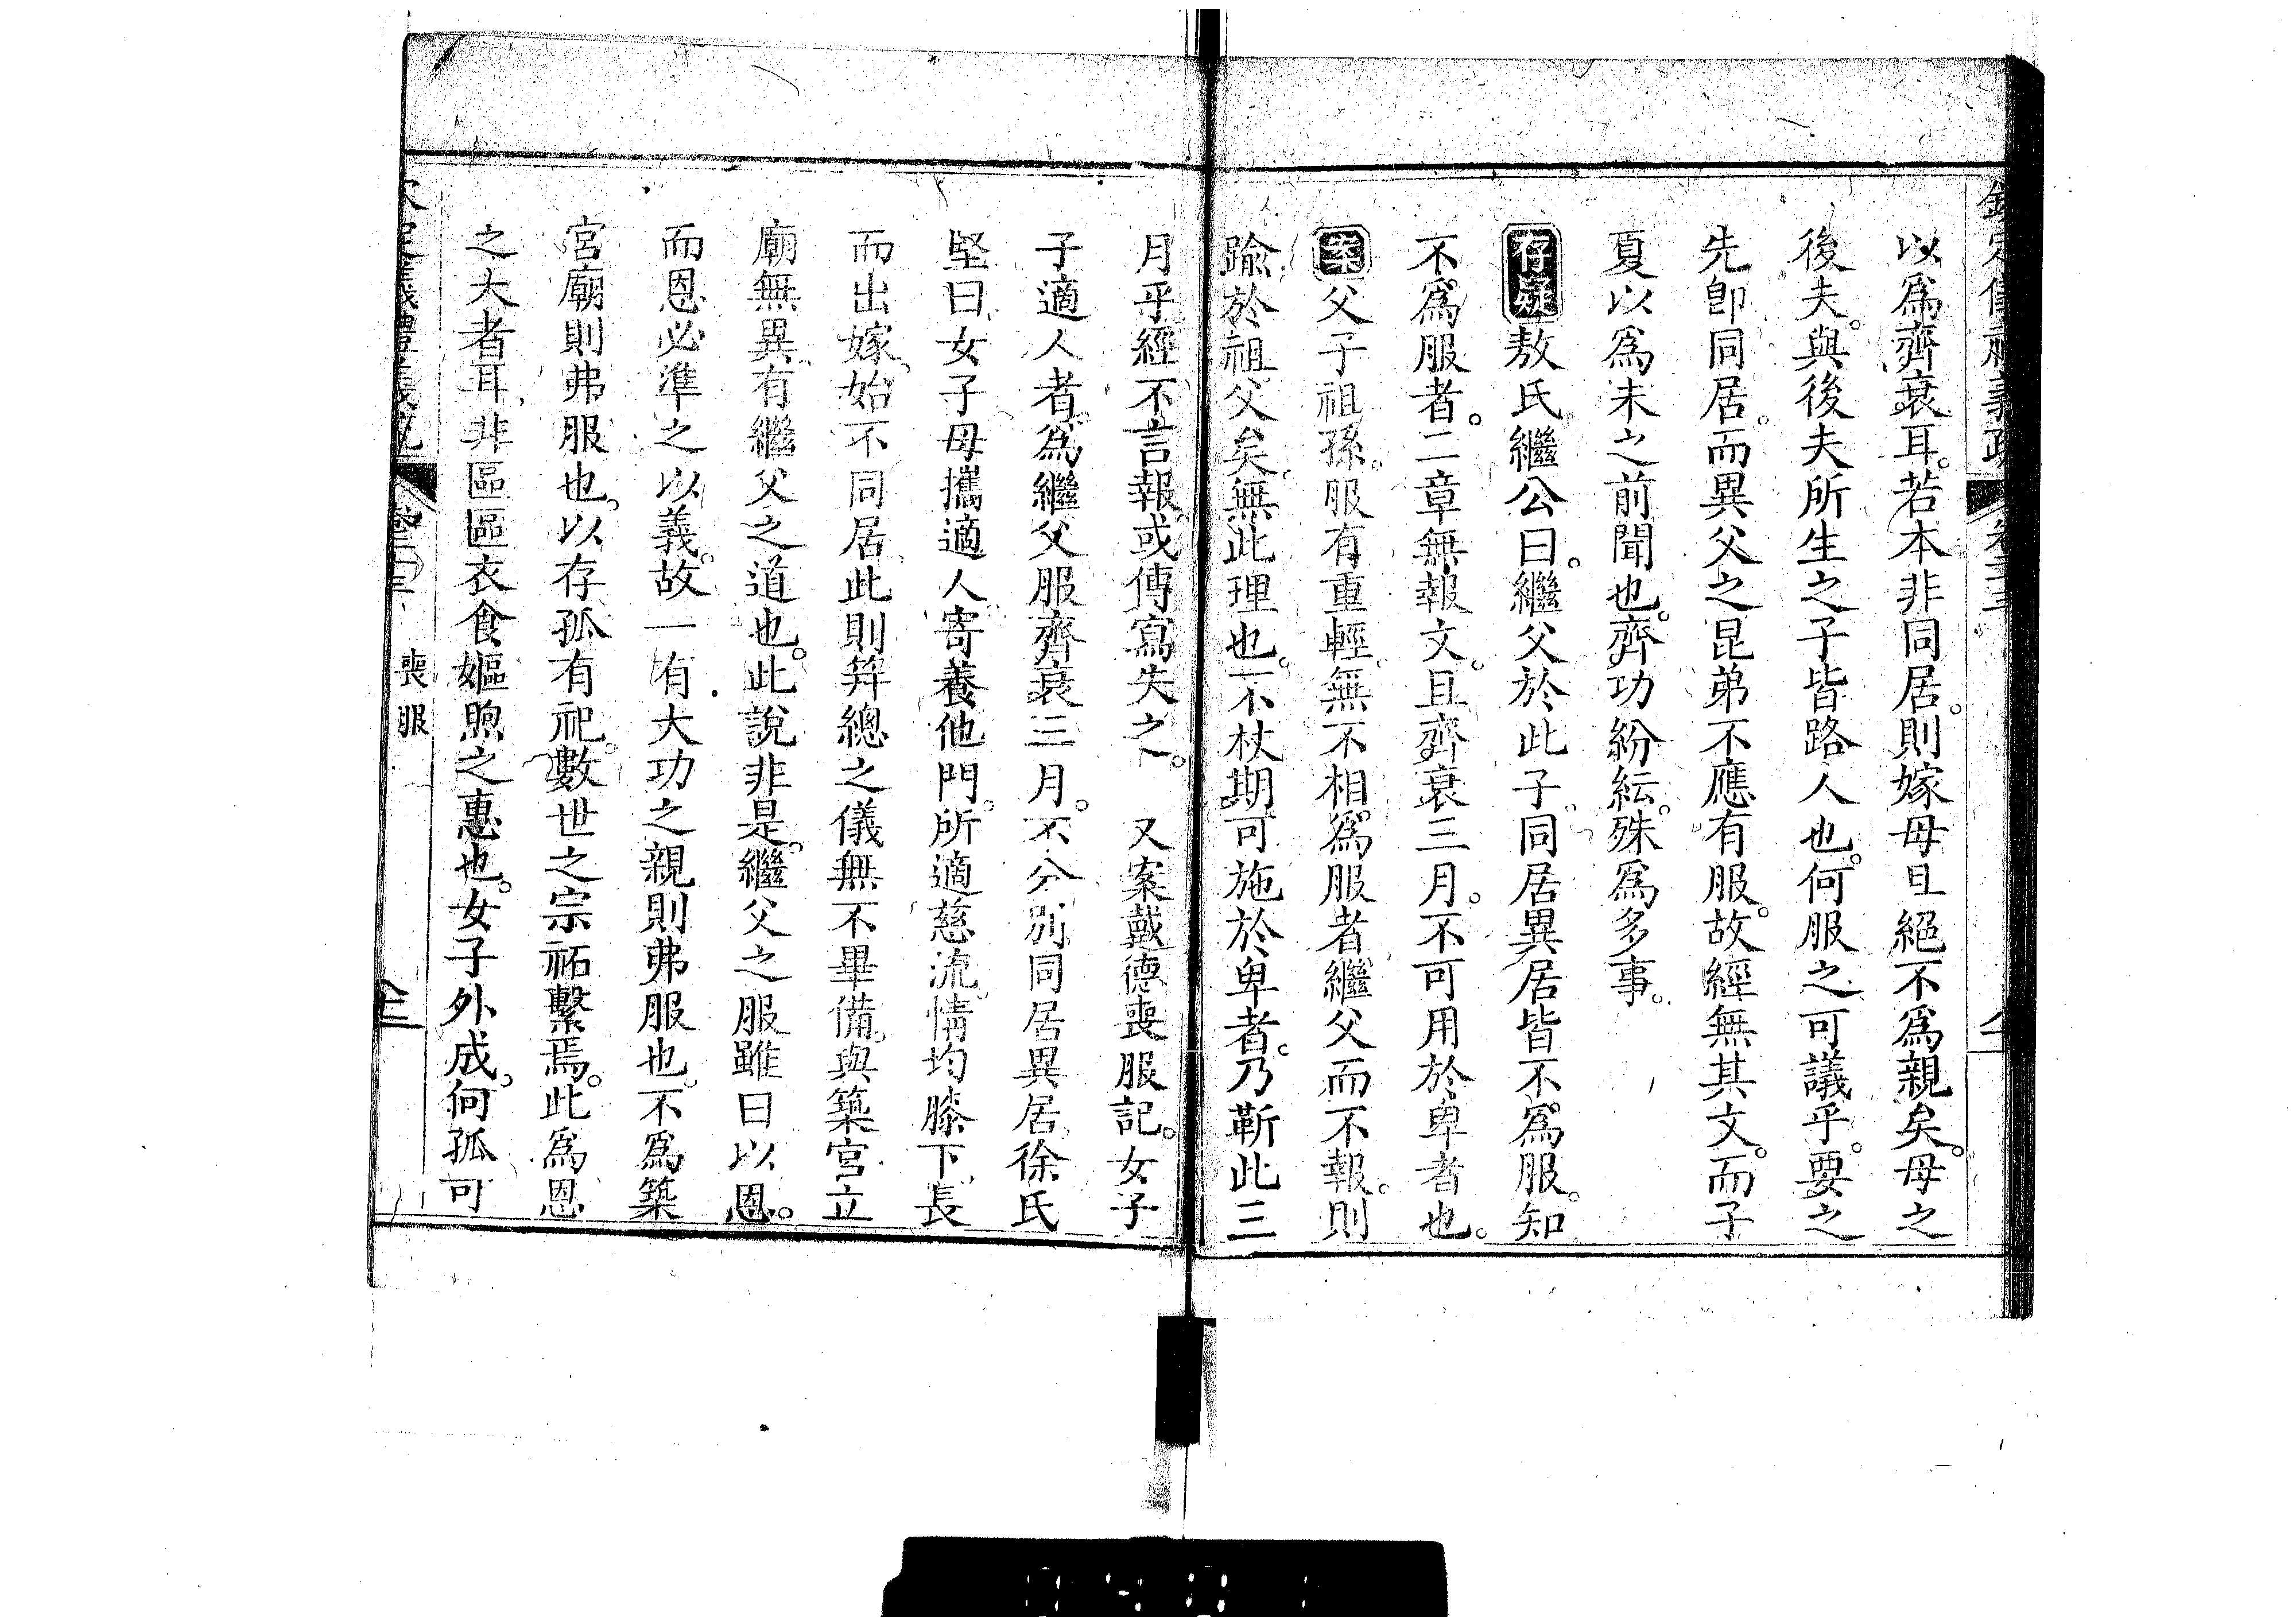 以爲齊衰耳。若本非同居。則嫁母且絕不爲親矣。母之
後夫。與後夫所生之子皆路人也。何服之可議乎。要之
先卽同居。而異父之昆弟不應有服。故經無其文。而子
夏以爲未之前聞也。齊功紛紜。殊爲多事。
存疑敖氏繼公曰。繼父於此子。同居異居皆不爲服。知
不爲服者。二章無報文。且齊衰三月。不可用於卑者也。
案父子祖孫。服有重輕。無不相爲服者。繼父而不報。則
踰於祖父矣。無此理也。不杖期可施於卑者。乃靳此三
月乎經不言報或傳寫失之。 又案戴德喪服記。女子
子適人者。爲繼父服齊衰三月。不分別同居異居。徐氏
堅曰女子母攜適人寄養他門。所適慈流。情均膝下、長
而出嫁、始不同居、此則笄總之儀無不畢備。與築宮立
廟無異、有繼父之道也。此說非是。繼父之服雖曰以恩。
而恩必準之以義。故一有大功之親則弗服也。不爲築
宮廟則弗服也。以存孤有祀。數世之宗祏繫焉。此爲恩
之大者耳、非區區衣食嫗煦之惠也。女子外成。何孤可
喪服